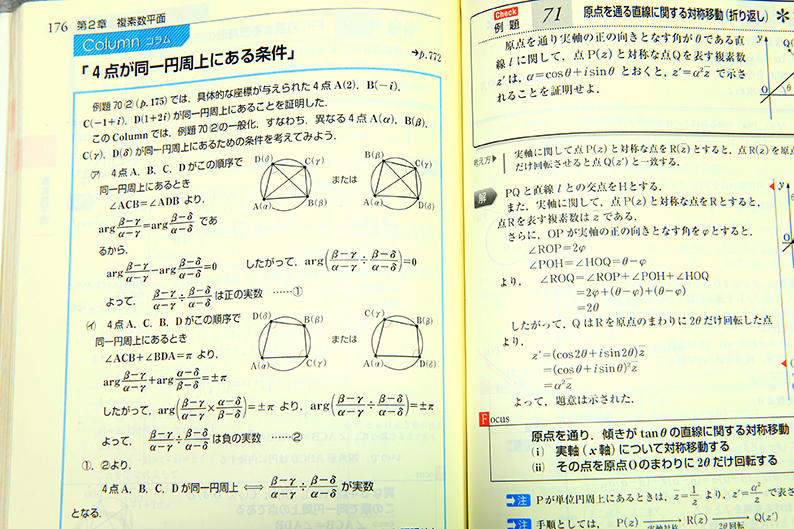 176 第2章 複素数平面
Column コラム
「4点が同一円周上にある条件」 →p.772
例題70⑵(p.175)では,具体的な座標が与えられた4点A(2), B(−i),
C(−1+i), D(1+2i)が同一円周上にあることを証明した.
このColumnでは,例題70⑵の一般化,すなわち,異なる4点A(α), B(β),
C(γ), D(δ)が同一円周上にあるための条件を考えてみよう.
(ア) 4点A, B, C, Dがこの順序で
同一円周上にあるとき
∠ACB=∠ADB より,
arg (β−γ)/(α−γ) = arg (β−δ)/(α−δ) であ
るから,
D(δ) C(γ) A(α) B(β) または B(β) C(γ) A(α) D(δ)
arg (β−γ)/(α−γ) − arg (β−δ)/(α−δ) = 0 したがって, arg((β−γ)/(α−γ) ÷ (β−δ)/(α−δ)) = 0
よって, (β−γ)/(α−γ) ÷ (β−δ)/(α−δ) は正の実数 ……①
(イ) 4点A, C, B, Dがこの順序で
同一円周上にあるとき
∠ACB+∠BDA=π より,
D(δ) B(β) A(α) C(γ) または C(γ) B(β) A(α) D(δ)
arg (β−γ)/(α−γ) + arg (α−δ)/(β−δ) = ±π
したがって, arg((β−γ)/(α−γ) × (α−δ)/(β−δ)) = ±π より, arg((β−γ)/(α−γ) ÷ (β−δ)/(α−δ)) = ±π
よって, (β−γ)/(α−γ) ÷ (β−δ)/(α−δ) は負の実数 ……②
①, ②より,
4点A, B, C, Dが同一円周上 ⟺ (β−γ)/(α−γ) ÷ (β−δ)/(α−δ) が実数
となる.
Check
例題 71 原点を通る直線に関する対称移動(折り返し)
原点を通り実軸の正の向きとなす角がθである直
線lに関して,点P(z)と対称な点Qを表す複素数
z′は, α=cosθ+isinθ とおくと, z′=α²z̄ で示さ
れることを証明せよ.
考え方 実軸に関して点P(z)と対称な点をR(z̄)とすると,点R(z̄)を原
だけ回転させると点Q(z′)と一致する.
解 PQと直線lとの交点をHとする.
また,実軸に関して,点P(z)と対称な点をRとすると,
点Rを表す複素数はz̄である.
さらに, OPが実軸の正の向きとなす角をφとすると,
∠ROP=2φ
∠POH=∠HOQ=θ−φ
より, ∠ROQ=∠ROP+∠POH+∠HOQ
=2φ+(θ−φ)+(θ−φ)
=2θ
したがって, QはRを原点のまわりに2θだけ回転した点
より,
z′=(cos2θ+isin2θ)z̄
=(cosθ+isinθ)²z̄
=α²z̄
よって,題意は示された.
Focus
原点を通り,傾きがtanθの直線に関する対称移動
(i) 実軸(x軸)について対称移動する
(ii) その点を原点Oのまわりに2θだけ回転する
注 Pが単位円周上にあるときは, z̄=1/z より, z′=α²/z で表さ
注 手順としては, P(z) R(z̄) Q(z′)